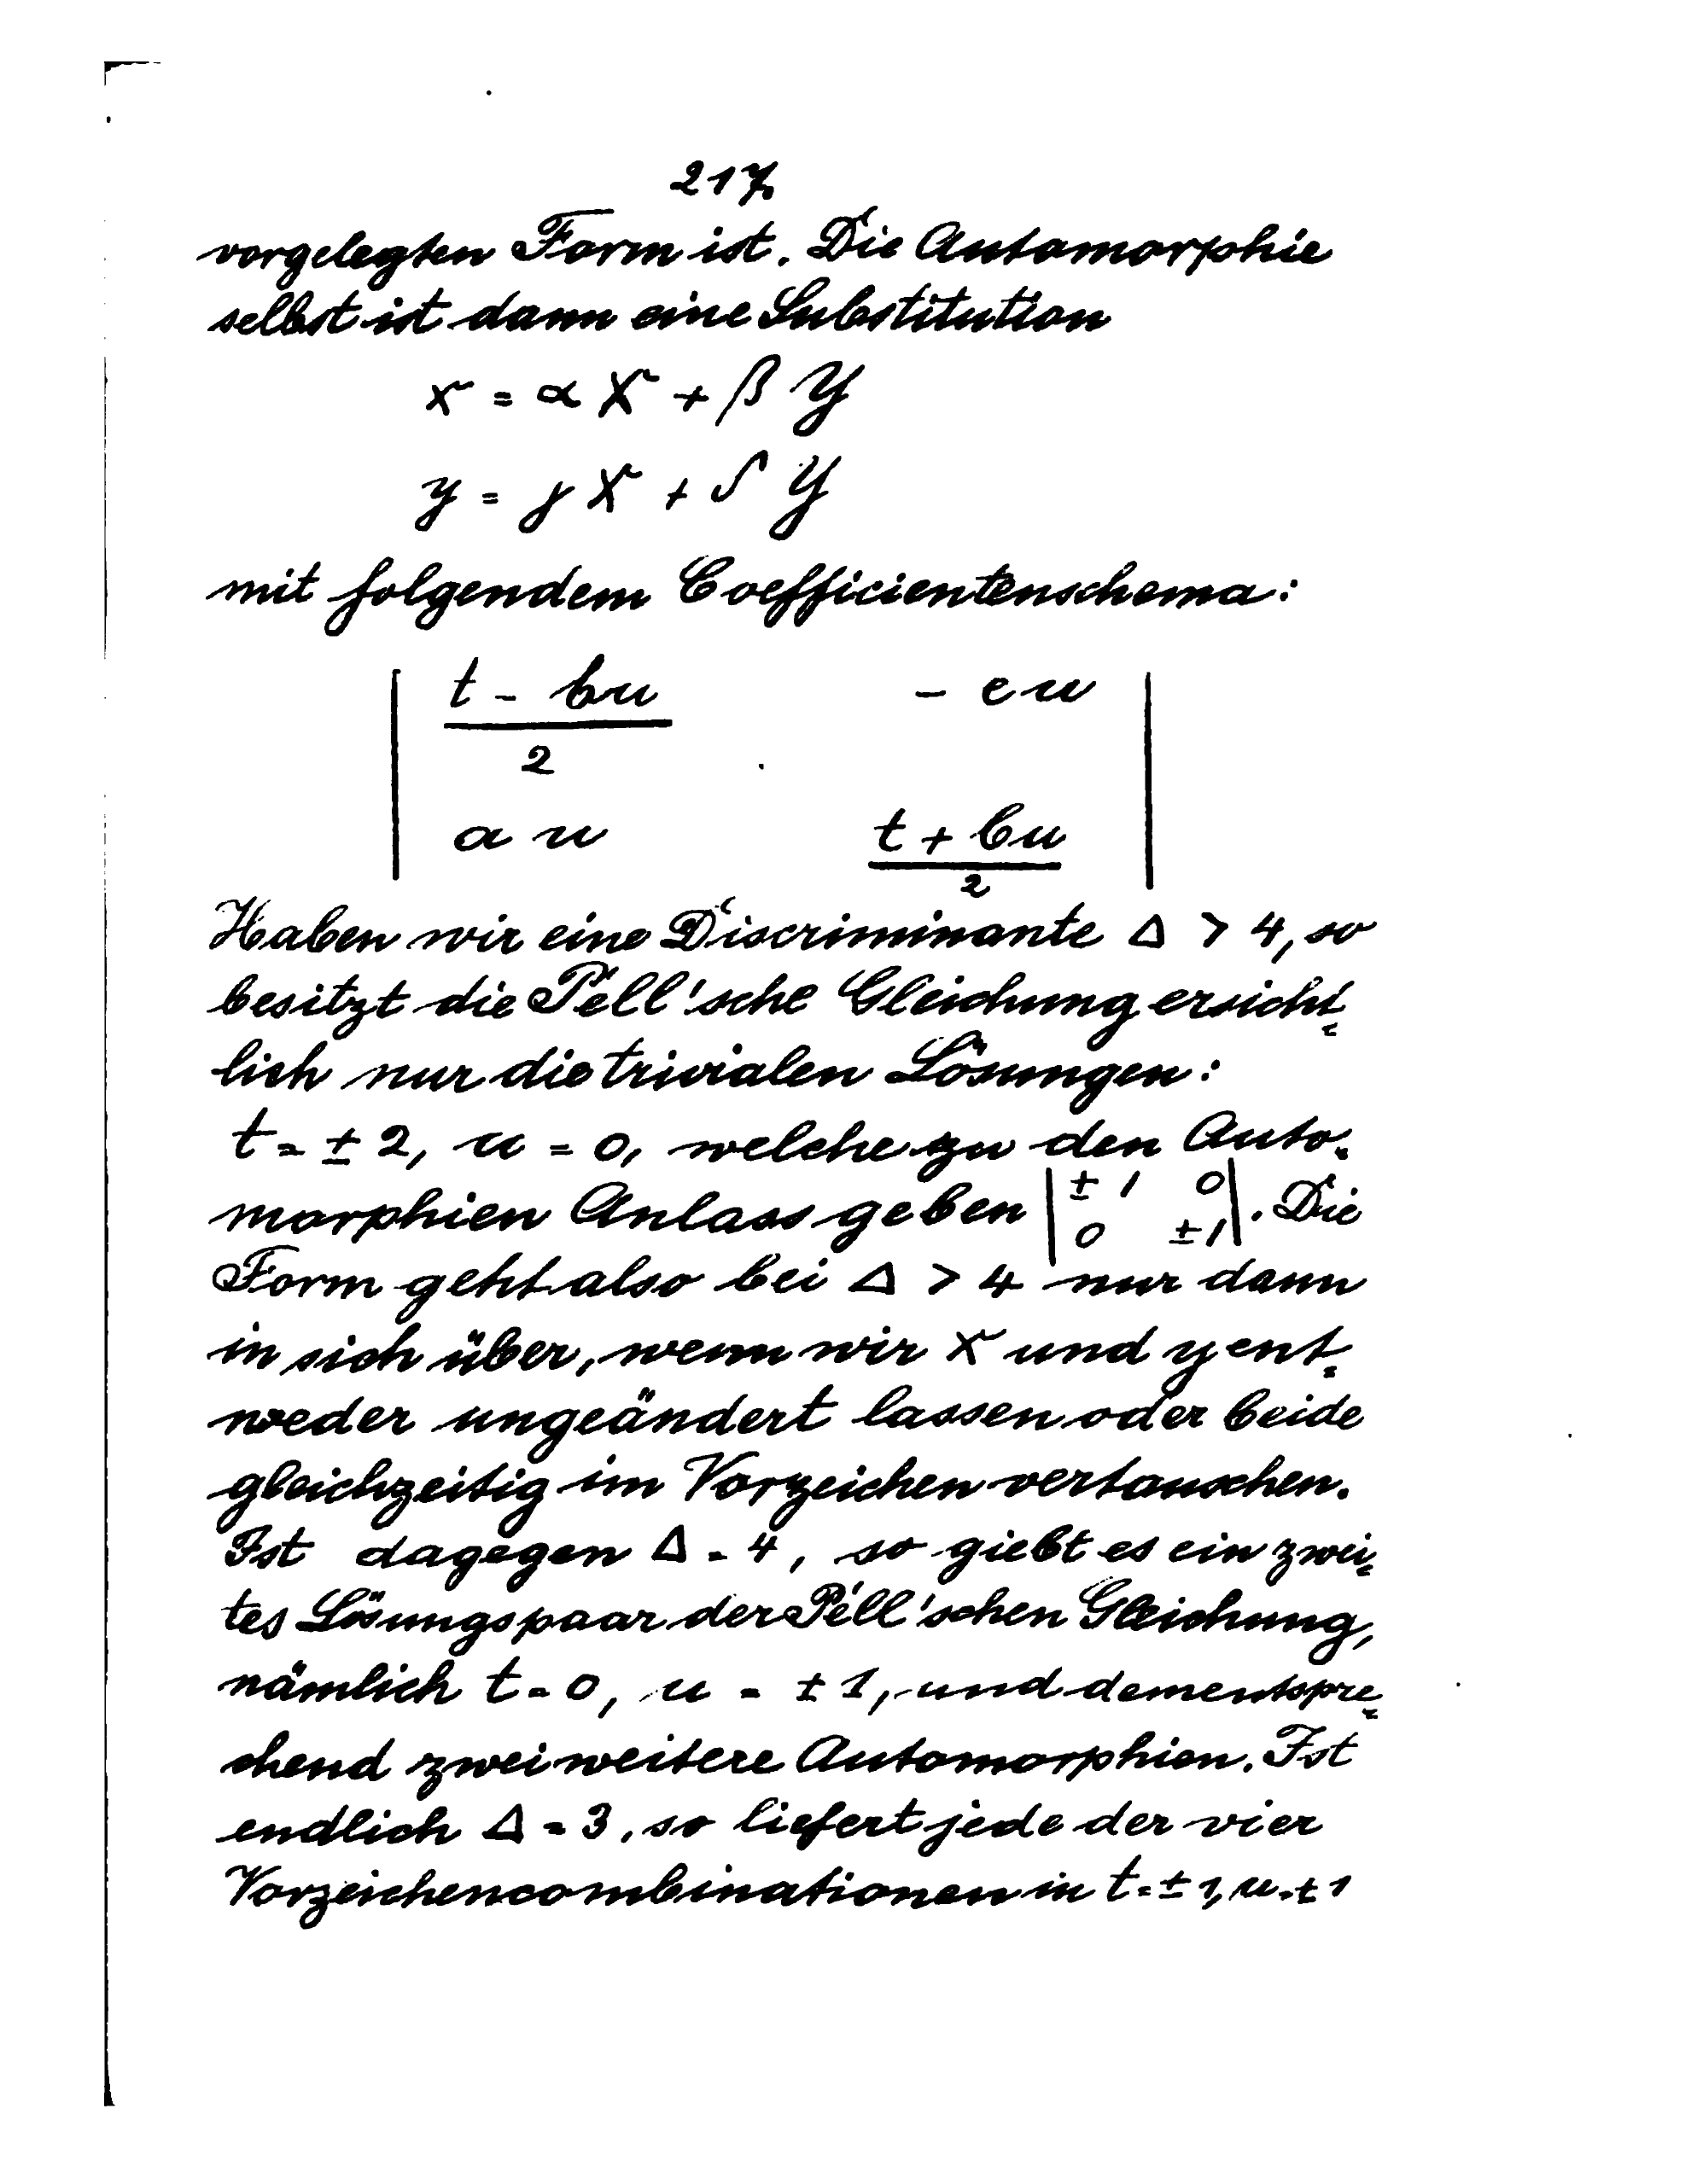 217.
vorgelegten Form ist. Die Automorphie
selbst ist dann eine Substitution
x = α X + β Y
y = γ X + δ Y
mit folgendem Coefficientenschema:
| (t - bu)/2   - cu |
| au   (t + bu)/2 |
Haben wir eine Discriminante Δ > 4, so
besitzt die Pell'sche Gleichung ersicht-
lich nur die trivialen Lösungen:
t = ± 2, u = 0, welche zu den Auto-
morphien Anlass geben |±1 0; 0 ±1|. Die
Form geht also bei Δ > 4 nur dann
in sich über, wenn wir x und y ent-
weder ungeändert lassen oder beide
gleichzeitig im Vorzeichen vertauschen.
Ist dagegen Δ = 4, so giebt es ein zwei-
tes Lösungspaar der Pell'schen Gleichung,
nämlich t = 0, u = ± 1, und dementspre-
chend zwei weitere Automorphien. Ist
endlich Δ = 3, so liefert jede der vier
Vorzeichencombinationen in t = ± 1, u = ± 1